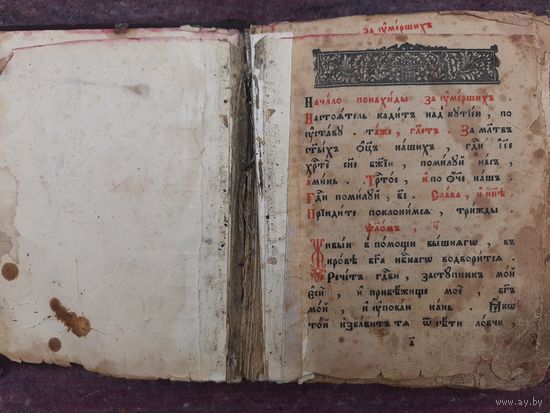 за ᲂу҆ме́ршихъ
Нача́ло понахи́ды за ᲂу҆ме́ршихъ .
Настоѧ́тель кади́тъ над̾ кꙋтїе́ю , по
ᲂу҆ста́вꙋ . та́же , гл҃етъ . За мл҃твъ
ст҃ы́хъ ѻ҆ц҃ъ на́шихъ , гдⷭ҇и і҆с҃е
хрⷭ҇те́ сн҃е бж҃їи , поми́лꙋй на́съ ,
а҆ми́нь . Трⷭ҇то́е , и҆ по ѻ҆́ч҃е на́шъ .
Гдⷭ҇и поми́лꙋй , в҃і . Сла́ва , и҆ ны́нѣ
Прїиди́те поклони́мсѧ , три́жды .
ѱало́мъ , ч҃
Живы́й в̾ по́мощи вы́шнѧгѡ , в̾
кро́вѣ бг҃а нбⷭ҇наго водвори́тсѧ .
Рече́тъ гдⷭ҇ви , застꙋ́пникъ мо́й
є҆сѝ , и҆ прибѣ́жище моѐ , бг҃ъ
мо́й , и҆ ᲂу҆пова́ю на́нь . Ꙗ҆́кѡ
то́й и҆зба́витъ тѧ ѿ сѣ́ти ло́вчи ,
а҃
www.ay.by